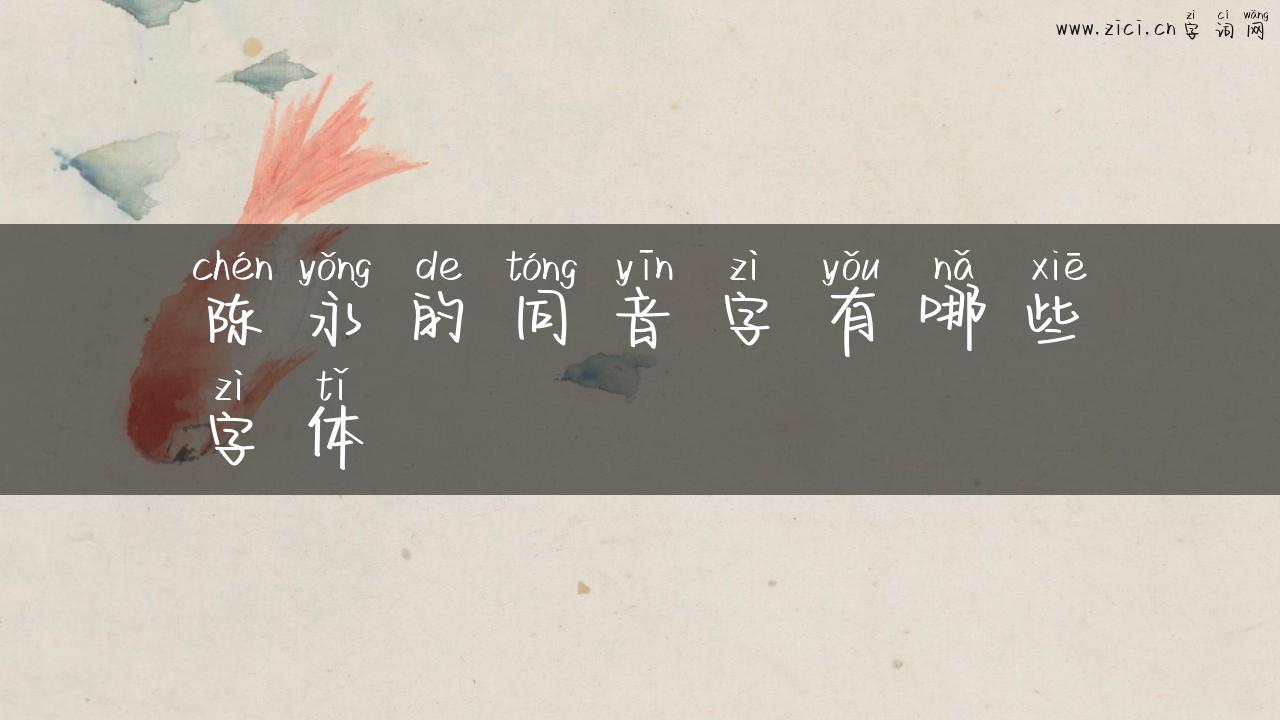 zì cí wǎng
www.zici.cn字词网
chén yǒng de tóng yīn zì yǒu nǎ xiē
陈永的同音字有哪些
zì tǐ
字体